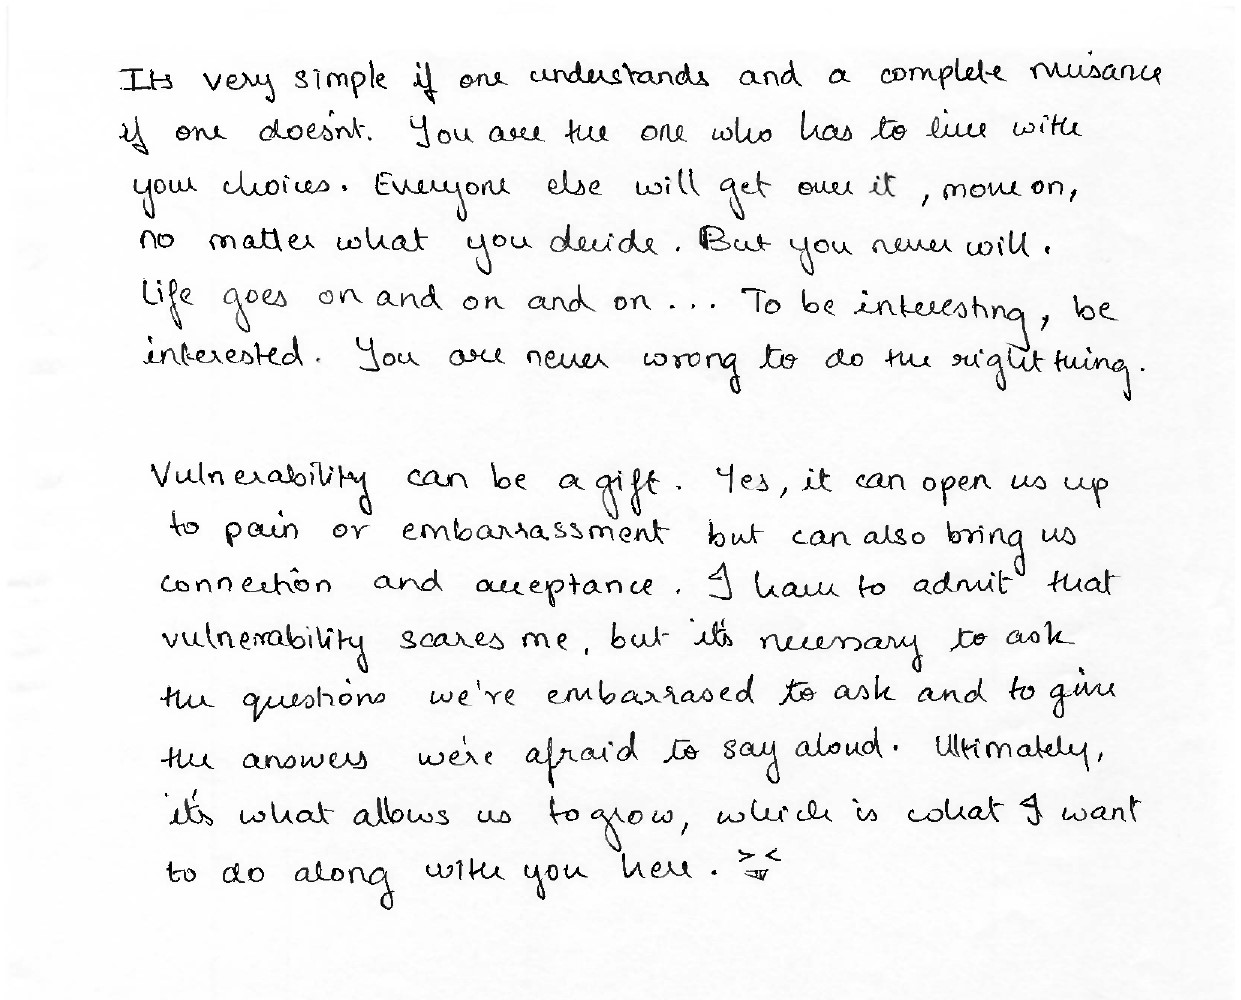 Its very simple if one understands and a complete nuisance
if one doesn't. You are the one who has to live with
your choices. Everyone else will get over it, move on,
no matter what you decide. But you never will.
Life goes on and on and on... To be interesting, be
interested. You are never wrong to do the right thing.
Vulnerability can be a gift. Yes, it can open us up
to pain or embarrassment but can also bring us
connection and acceptance. I have to admit that
vulnerability scares me, but it's necessary to ask
the questions we're embarrased to ask and to give
the answers we're afraid to say aloud. Ultimately,
it's what allows us to grow, which is what I want
to do along with you here.